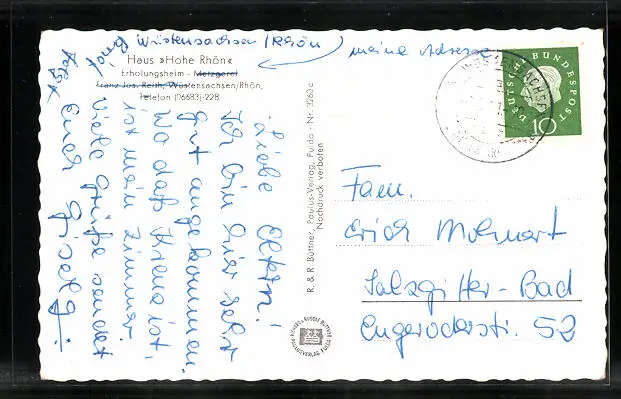 Wüstensachsen / Rhön
meine Adresse
Haus »Hohe Rhön«
Erholungsheim – Metzgerei
Franz Jos. Reith, Wüstensachsen/Rhön,
Telefon (06683)-228
Liebe Eltern!
Ich bin hier sehr
gut angekommen.
Wo daß Kreuz ist,
ist mein Zimmer.
Viele Grüße sendet
euch Gisela.
R. & R. Büttner, Paulus-Verlag, Fulda - Nr. 3263 c
Nachdruck verboten
DEUTSCHE BUNDESPOST
10
Fam.
Erich Mohnert
Salzgitter-Bad
Engeroderstr. 53